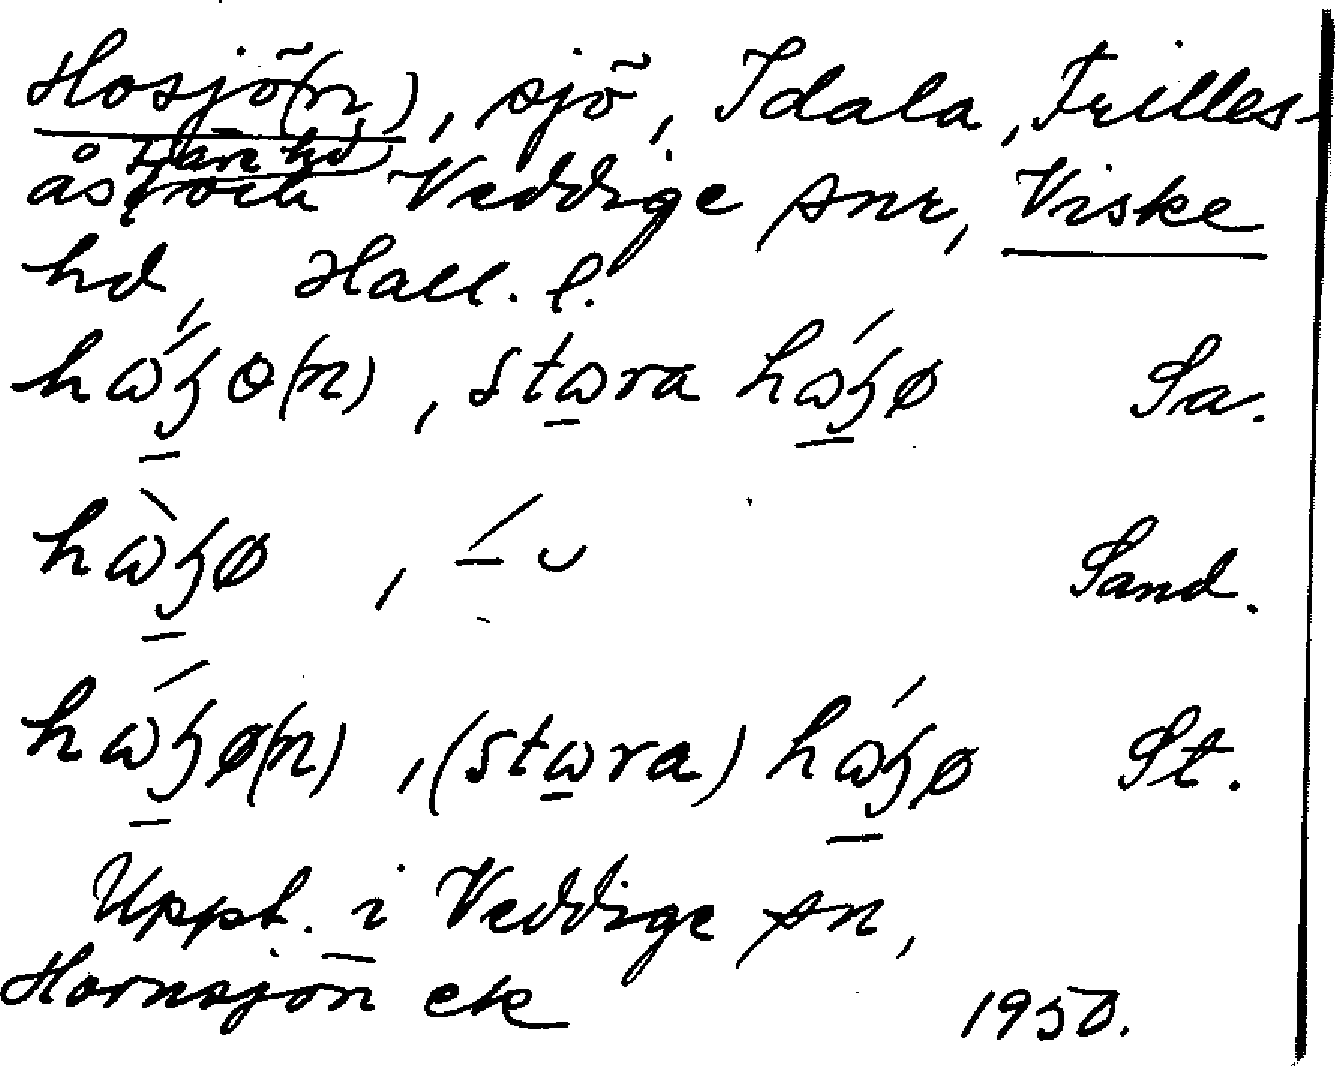 Hosjö(n), sjö, Idala, Frilles-
ås (Fjäre hd) och Veddige snr, Viske
hd, Hall. l.
hώʒө(n), stωra hώʒø Sa.
hὼʒø, –́ ᴗ Sand.
hώʒø(n), (stωra) hώʒø St.
Uppt. i Veddige sn,
Hornsjön ek 1950.